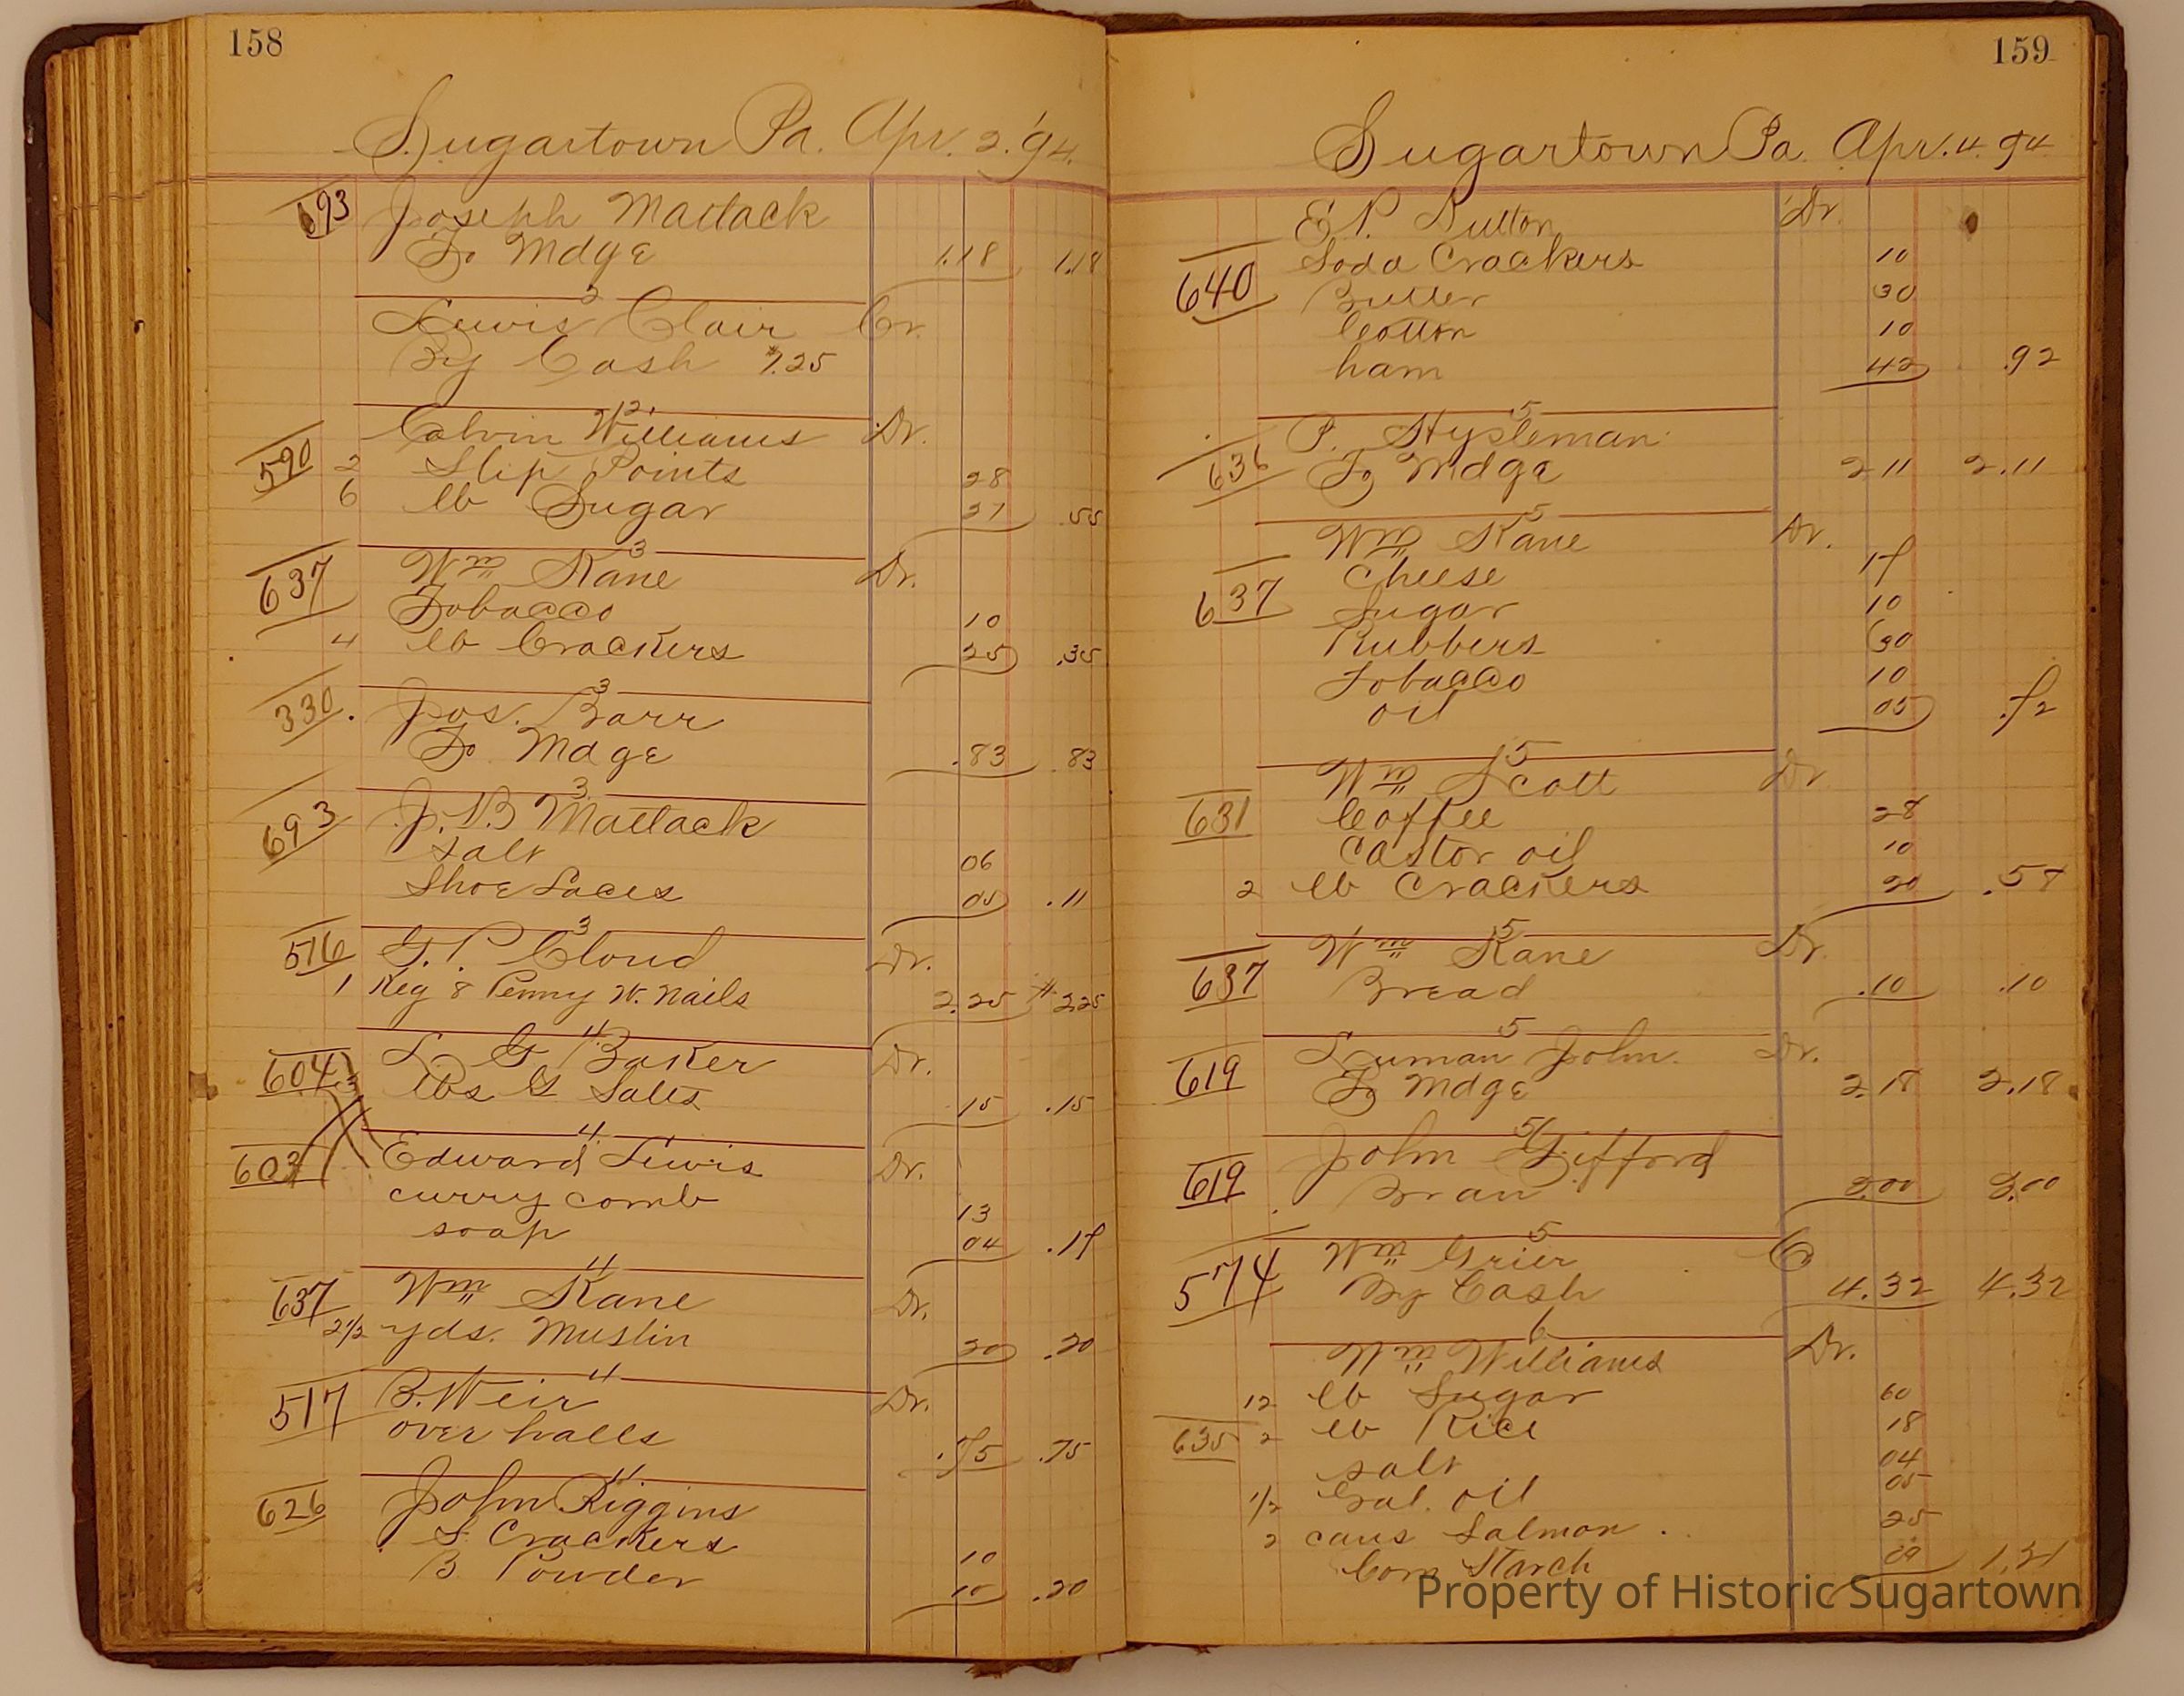 158
Sugartown Pa. Apr. 2. '94.
693 Joseph Matlack
To Mdge 1.18 1.18
2
Lewis Clair Cr.
By Cash $7.25
2
Calvin Williams Dr.
590 2 Slip Points 28
6 lb Sugar 27 .55
3
637 Wm Kane Dr.
Tobacco 10
4 lb Crackers 25 .35
3
330. Jos. Barr
To Mdge .83 .83
3
693 J. B Matlack
Salt 06
Shoe Laces 05 .11
3
516 G. P. Cloud Dr.
1 Keg 8 Penny W. Nails 2.25 $2.25
4
604 L G Baker Dr.
3 lbs G Salts .15 .15
4
603 Edward Lewis Dr.
curry comb 13
soap 04 .17
4
637 Wm Kane Dr.
2 1/2 yds. Muslin 20 .20
4
517 B. Weir Dr.
over halls .75 .75
4
626 John Riggins
S. Crackers 10
B Powder 10 .20
159
Sugartown Pa. Apr. 4. 94
E. P. Dr.
640 Soda Crackers 10
Butter 30
Cotton 10
ham 42 .92
5
636 P. Hysleman
To Mdge 2 11 2.11
5
Wm Kane Dr.
Cheese 17
637 Sugar 10
Rubbers 30
Tobacco 10
oil 05 .72
5
Wm Scott Dr
631 Coffee 28
Castor oil 10
2 lb Crackers 20 .58
5
637 Wm Kane Dr.
Bread .10 .10
5
619 Luman John. Dr.
To Mdge 2.18 2.18
5
619 John Gifford
Bran 2.00 2.00
5
574 Wm Grier Cr
By Cash 4.32 4.32
6
Wm Williams Dr.
12 lb Sugar 60
635 2 lb Rice 18
Salt 04
1/2 Gal. oil 05
2 cans Salmon . 25
Corn Starch 09 1.21
Property of Historic Sugartown